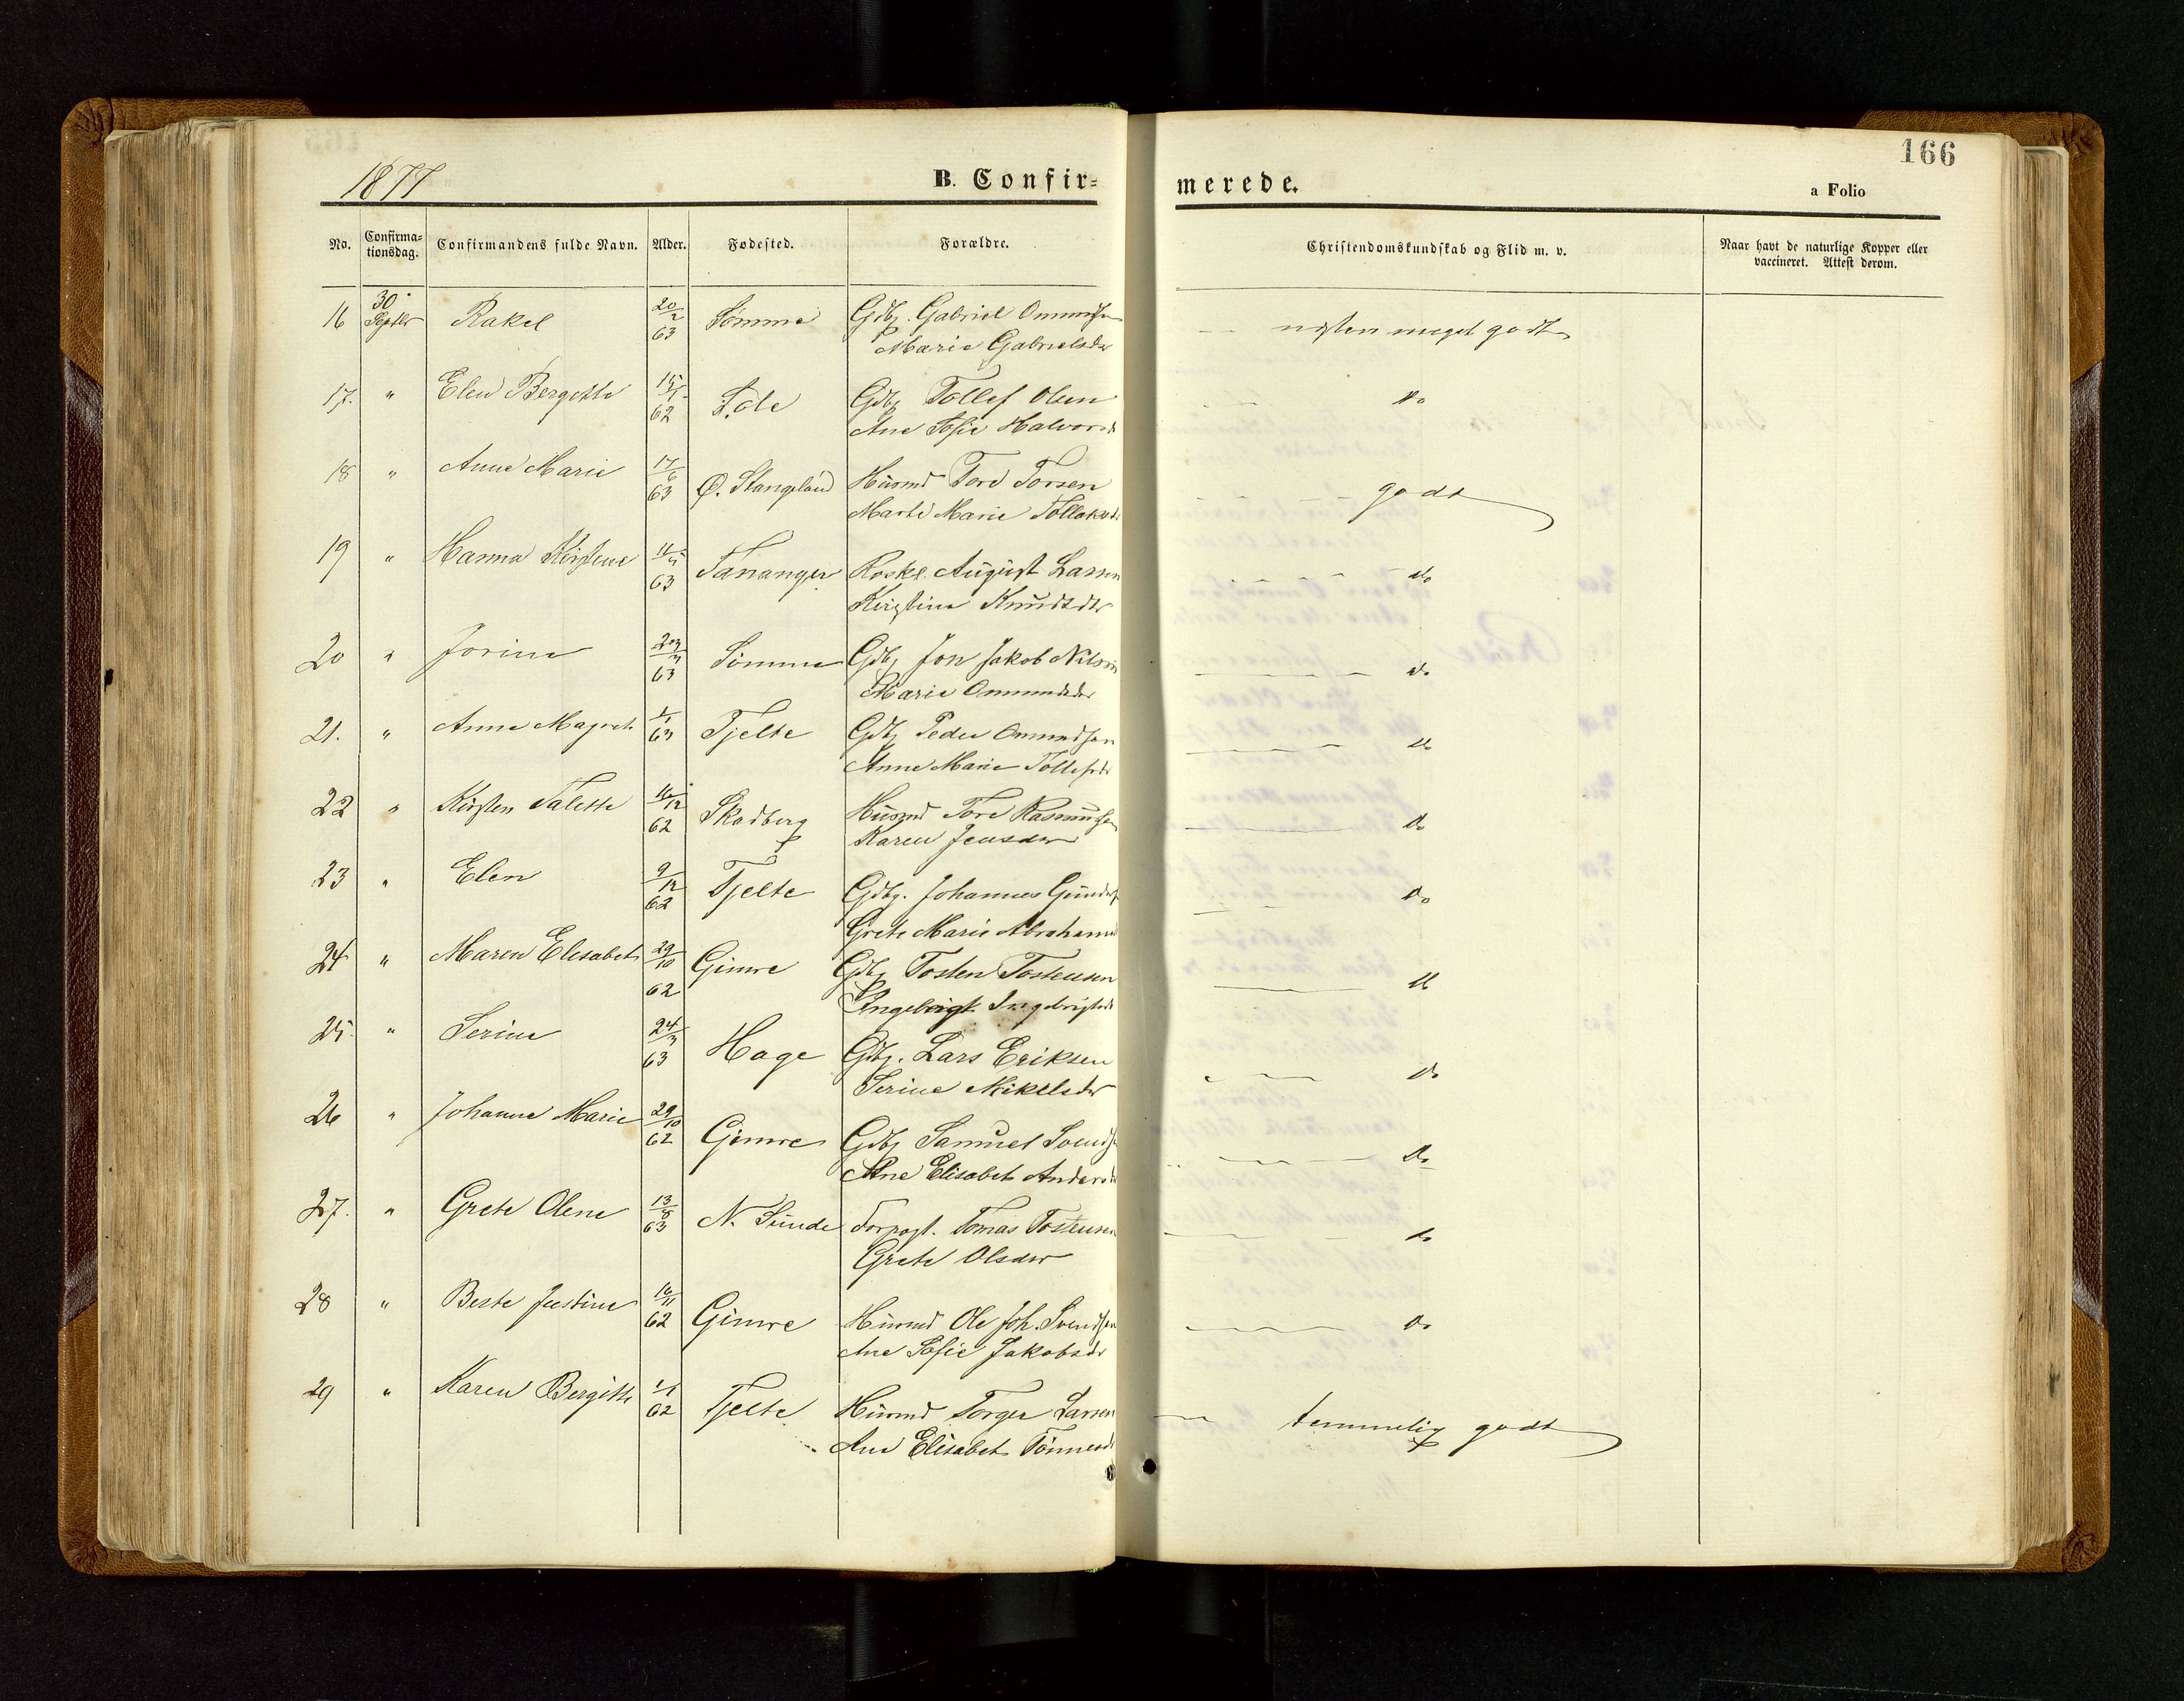 1877
B. Confir=
merede.
166
a Folio
No.
Confirma=
tionsdag.
Confirmandens fulde Navn.
Alder.
Fødested.
Forældre.
Christendomskundskab og Flid m. v.
Naar havt de naturlige Kopper eller
vaccineret. Attest derom.
16 30 Septbr Rakel 20/2 63 Sømme Gdbr. Gabriel Ommundsen
Marie Gabrielsdr
nesten meget godt
17. " Elen Bergitte 62 Sole Gdbr Tollef Olsen
Ane Sofie Halvorsd
do
18 " Anne Marie 17/6 63 Ø. Stangeland Husmd Tore Torsen
Marte Marie Tollaksdr
godt
19 " Hanna Kirstine 11/5 63 Tananger August Larsen
Kirstine Knudsdr
do
20 " Jorine 23/3 63 Sømme Gdbr Jon Jakob Nilsen
Marie Ommundsdr
do
21. " Anne Magret 1/1 63 Tjelte Gdbr Peder Ommundsen
Anne Marie Tollefsdr
do
22 " Kirsten Talette 16/12 62 Skadberg Husmd Tore Rasmussen
Karen Jensdr
do
23 " Elen 9/12 62 Tjelte Gdbr. Johannes Gunders
Grete Marie Abrahams
do
24 " Maren Elisabet 29/10 62 Gimre Gdbr Tosten Tostensen
Ingebrigt Ingebrigtsd
do
25. " Serine 24/3 63 Hage Gdbr. Lars Eriksen
Serine Mikelsdr
do
26 " Johanne Marie 29/10 62 Gimre Gdbr Samuel Svends
Ane Elisabet Andersd
do
27. " Grete Olene 13/8 63 N. Sunde Forpagt. Tomas Tostensen
Grete Olsdr
do
28 " Berte Justine 16/11 62 Gimre Husmd Ole Joh. Svendsen
Ane Sofie Jakobsdr
do
29 " Karen Bergitte 1/1 62 Tjelte Husmd Torger Larsen
Ane Elisabet Tønnesd
temmelig godt